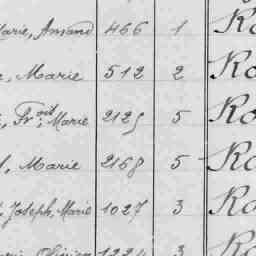 Marie, Amand 466 1 Ro
, Marie 512 2 Ro
, Frois, Marie 2125 5 Ro
, Marie 2168 5 Ro
, Joseph, Marie 1027 3 Ro
Olivier 1224 3 Ro